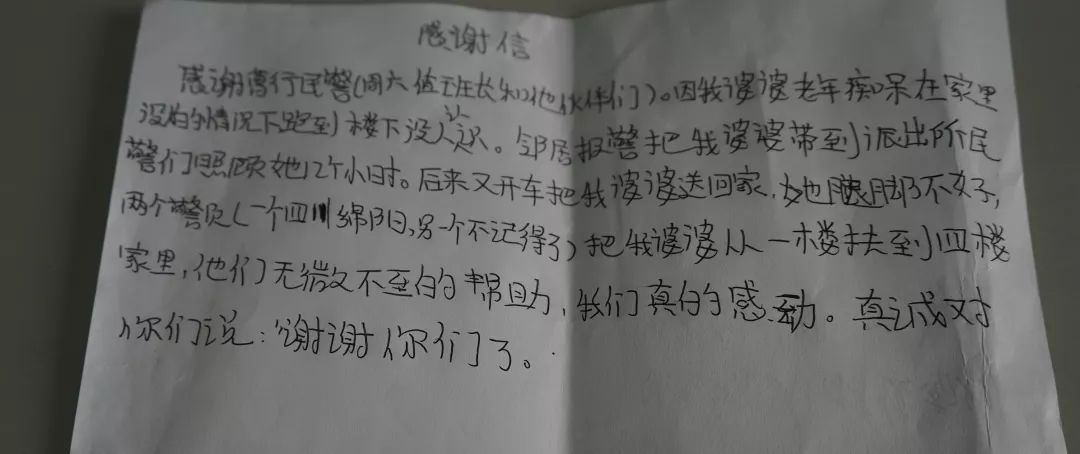 感谢信
感谢曹行民警(周六值班长和他伙伴们)。因我婆婆老年痴呆在家里
没的情况下跑到楼下没人认识。邻居报警把我婆婆带到派出所民
警们照顾她12个小时。后来又开车把我婆婆送回家,她腿脚不好,
两个警员(一个四川绵阳,另一个不记得了)把我婆婆从一楼扶到四楼
家里,他们无微不至的帮助,我们真的感动。真诚对
你们说:谢谢你们了。